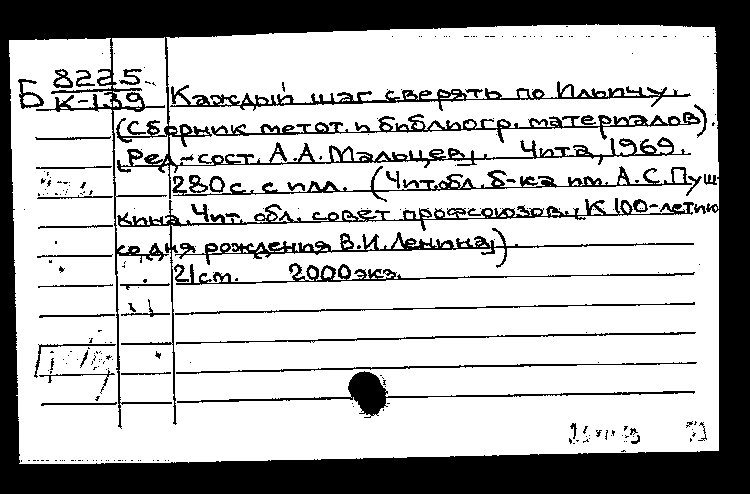 Б 8225
К-139
Каждый шаг сверять по Ильичу.
(Сборник метот. и библиогр. материалов).
[Ред.-сост. А.А. Мальцев]. Чита, 1969.
280 с. с илл. (Чит. обл. б-ка им. А.С. Пуш-
кина. Чит. обл. совет профсоюзов. [К 100-летию
со дня рождения В.И. Ленина]).
21 ст. 2000 экз.